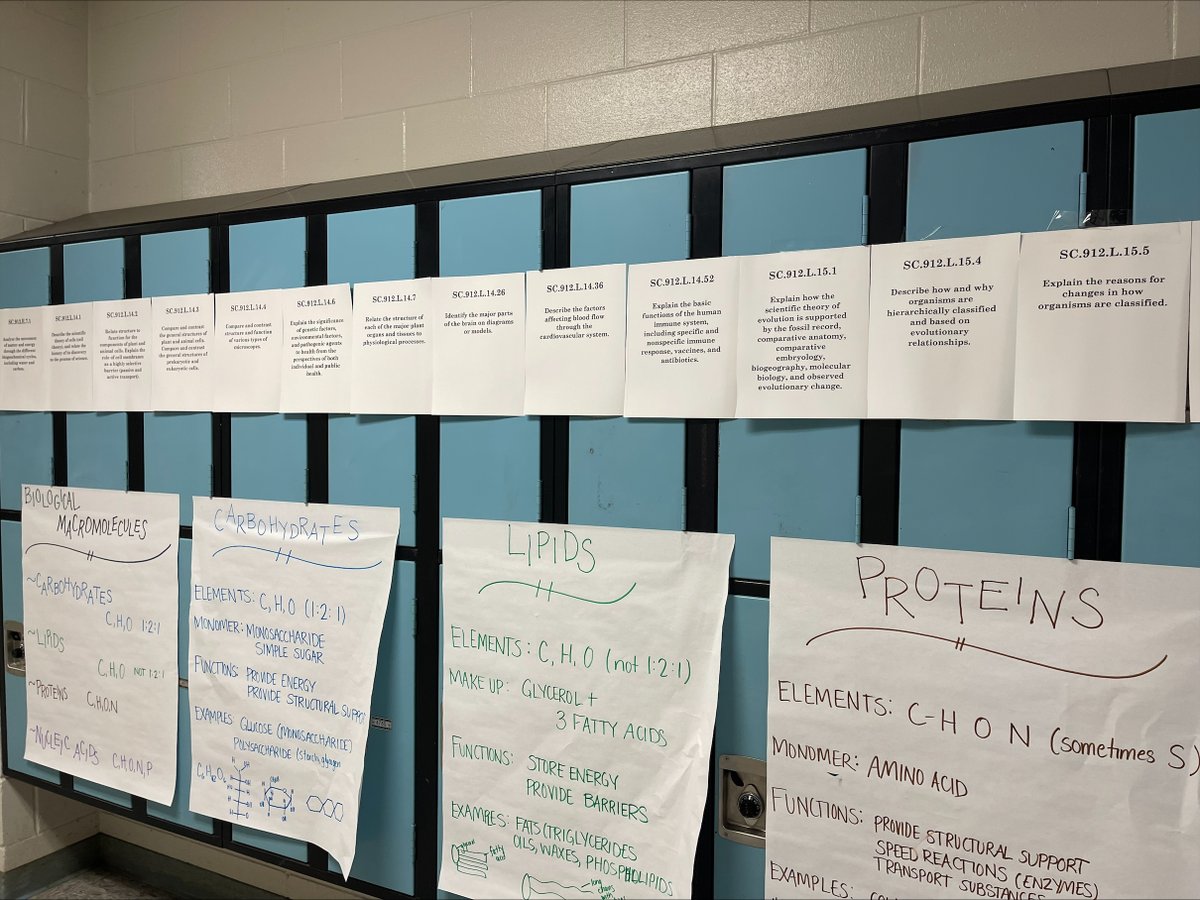 SC.912.E.7.1
Analyze the movement
of matter and energy
through the different
biogeochemical cycles,
including water and
carbon.
SC.912.L.14.1
Describe the scientific
theory of cells (cell
theory) and relate the
history of its discovery
to the process of science.
SC.912.L.14.2
Relate structure to
function for the
components of plant and
animal cells. Explain the
role of cell membranes
as a highly selective
barrier (passive and
active transport).
SC.912.L.14.3
Compare and contrast
the general structures of
plant and animal cells.
Compare and contrast
the general structures of
prokaryotic and
eukaryotic cells.
SC.912.L.14.4
Compare and contrast
structure and function
of various types of
microscopes.
SC.912.L.14.6
Explain the significance
of genetic factors,
environmental factors,
and pathogenic agents
to health from the
perspectives of both
individual and public
health.
SC.912.L.14.7
Relate the structure of
each of the major plant
organs and tissues to
physiological processes.
SC.912.L.14.26
Identify the major parts
of the brain on diagrams
or models.
SC.912.L.14.36
Describe the factors
affecting blood flow
through the
cardiovascular system.
SC.912.L.14.52
Explain the basic
functions of the human
immune system,
including specific and
nonspecific immune
response, vaccines, and
antibiotics.
SC.912.L.15.1
Explain how the
scientific theory of
evolution is supported
by the fossil record,
comparative anatomy,
comparative
embryology,
biogeography, molecular
biology, and observed
evolutionary change.
SC.912.L.15.4
Describe how and why
organisms are
hierarchically classified
and based on
evolutionary
relationships.
SC.912.L.15.5
Explain the reasons for
changes in how
organisms are classified.
BIOLOGICAL
MACROMOLECULES
~CARBOHYDRATES
C,H,O 1:2:1
~LIPIDS
C,H,O NOT 1:2:1
~PROTEINS C,H,O,N
~NUCLEIC ACIDS C,H,O,N,P
CARBOHYDRATES
ELEMENTS: C, H, O (1:2:1)
MONOMER: MONOSACCHARIDE
SIMPLE SUGAR
FUNCTIONS: PROVIDE ENERGY
PROVIDE STRUCTURAL SUPPORT
EXAMPLES: GLUCOSE (MONOSACCHARIDE)
POLYSACCHARIDE (starch, glycogen
C6H12O6
LIPIDS
ELEMENTS: C, H, O (not 1:2:1)
MAKE UP: GLYCEROL +
3 FATTY ACIDS
FUNCTIONS: STORE ENERGY
PROVIDE BARRIERS
EXAMPLES: FATS (TRIGLYCERIDES
OILS, WAXES, PHOSPHOLIPIDS
fatty
acid
long
chains
PROTEINS
ELEMENTS: C-H O N (sometimes S)
MONOMER: AMINO ACID
FUNCTIONS: PROVIDE STRUCTURAL SUPPORT
SPEED REACTIONS (ENZYMES)
TRANSPORT SUBSTANCES
EXAMPLES: